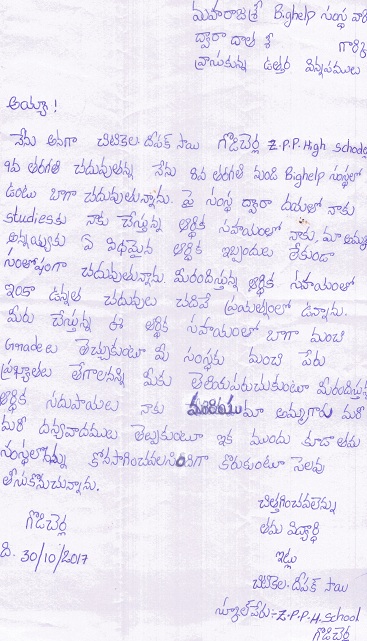 మహారాజశ్రీ Bighelp సంస్థ వారి
ద్వారా దాత శ్రీ గారికి
వ్రాయుకున్న ఉత్తర విన్నపములు
అయ్యా!
నేను అనగా చిటికెల దీపక్ సాయి గొడిచెర్ల Z.P.P. High school
తరగతి చదువుతున్న నేను 8వ తరగతి నుండి Bighelp సంస్థలో
ఉంటు బాగా చదువుతున్నాను. పై సంస్థ ద్వారా దయతో నాకు
studiesకు నాకు చేస్తున్న ఆర్థిక సహాయంతో నాకు, మా అమ్మ
అన్నయ్యకు ఏ విధమైన ఆర్థిక ఇబ్బందులు లేకుండా
సంతోషంగా చదువుతున్నాను. మీరందిస్తున్న ఆర్థిక సహాయంతో
ఇంకా ఉన్నత చదువులు చదివే ప్రయత్నంలో ఉన్నాను.
మీరు చేస్తున్న ఈ ఆర్థిక సహాయంతో బాగా మంచి
Gradeలు తెచ్చుకుంటూ మీ సంస్థకు మంచి పేరు
ప్రఖ్యాతలు తేగాలనని మీకు తెలియపరుచుకుంటూ మీరందిస్తున్న
ఆర్థిక సదుపాయలు నాకు మరియు మా అమ్మగారు మరి
మరి దన్యవాదములు తెల్పుకుంటూ ఇక ముందు కూడా తమ
సంస్థలో నన్ను కోనసాగించవలసిందిగా కోరుకుంటూ సెలవు
తీసుకొనుచున్నాను.
చిత్తగించవలెను
గొడిచెర్ల తమ విద్యార్థి
ది. 30/10/2017 ఇట్లు
చిటికెల. దీపక్ సాయి
స్కూల్ పేరు:- Z.P.P.H. School
గొడిచెర్ల